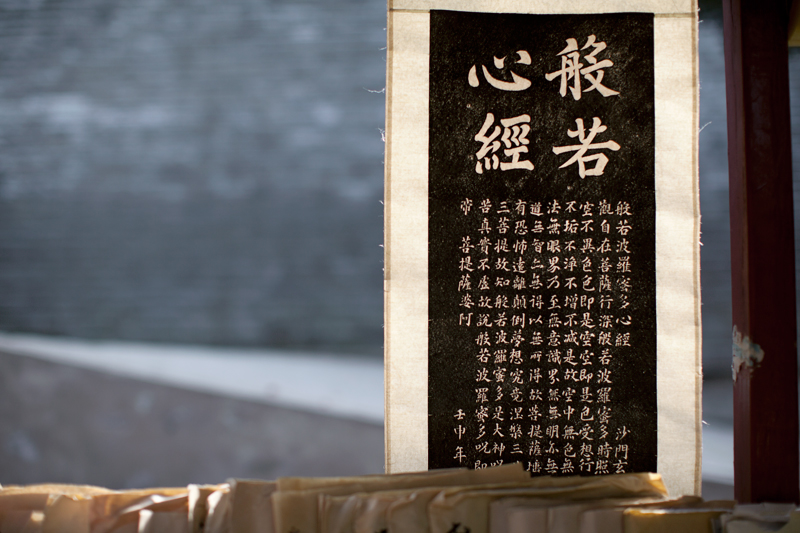 般若
心經
般若波羅蜜多心經 沙門玄
觀自在菩薩行深般若波羅蜜多時照
空不異色色即是空空即是色受想行
不垢不淨不增不減是故空中無色無
法無眼界乃至無意識界無無明亦無
道無智亦無得以無所得故菩提薩埵
有恐怖遠離顛倒夢想究竟涅槃三
三菩提故知般若波羅蜜多是大神咒
苦真實不虛故說般若波羅蜜多咒即
帝 菩提薩婆阿 壬申年